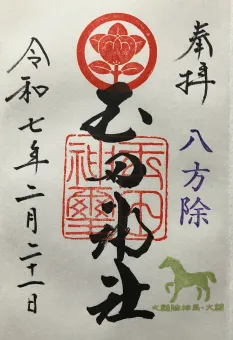 奉拝
八方除
玉田神社
令和七年二月二十一日